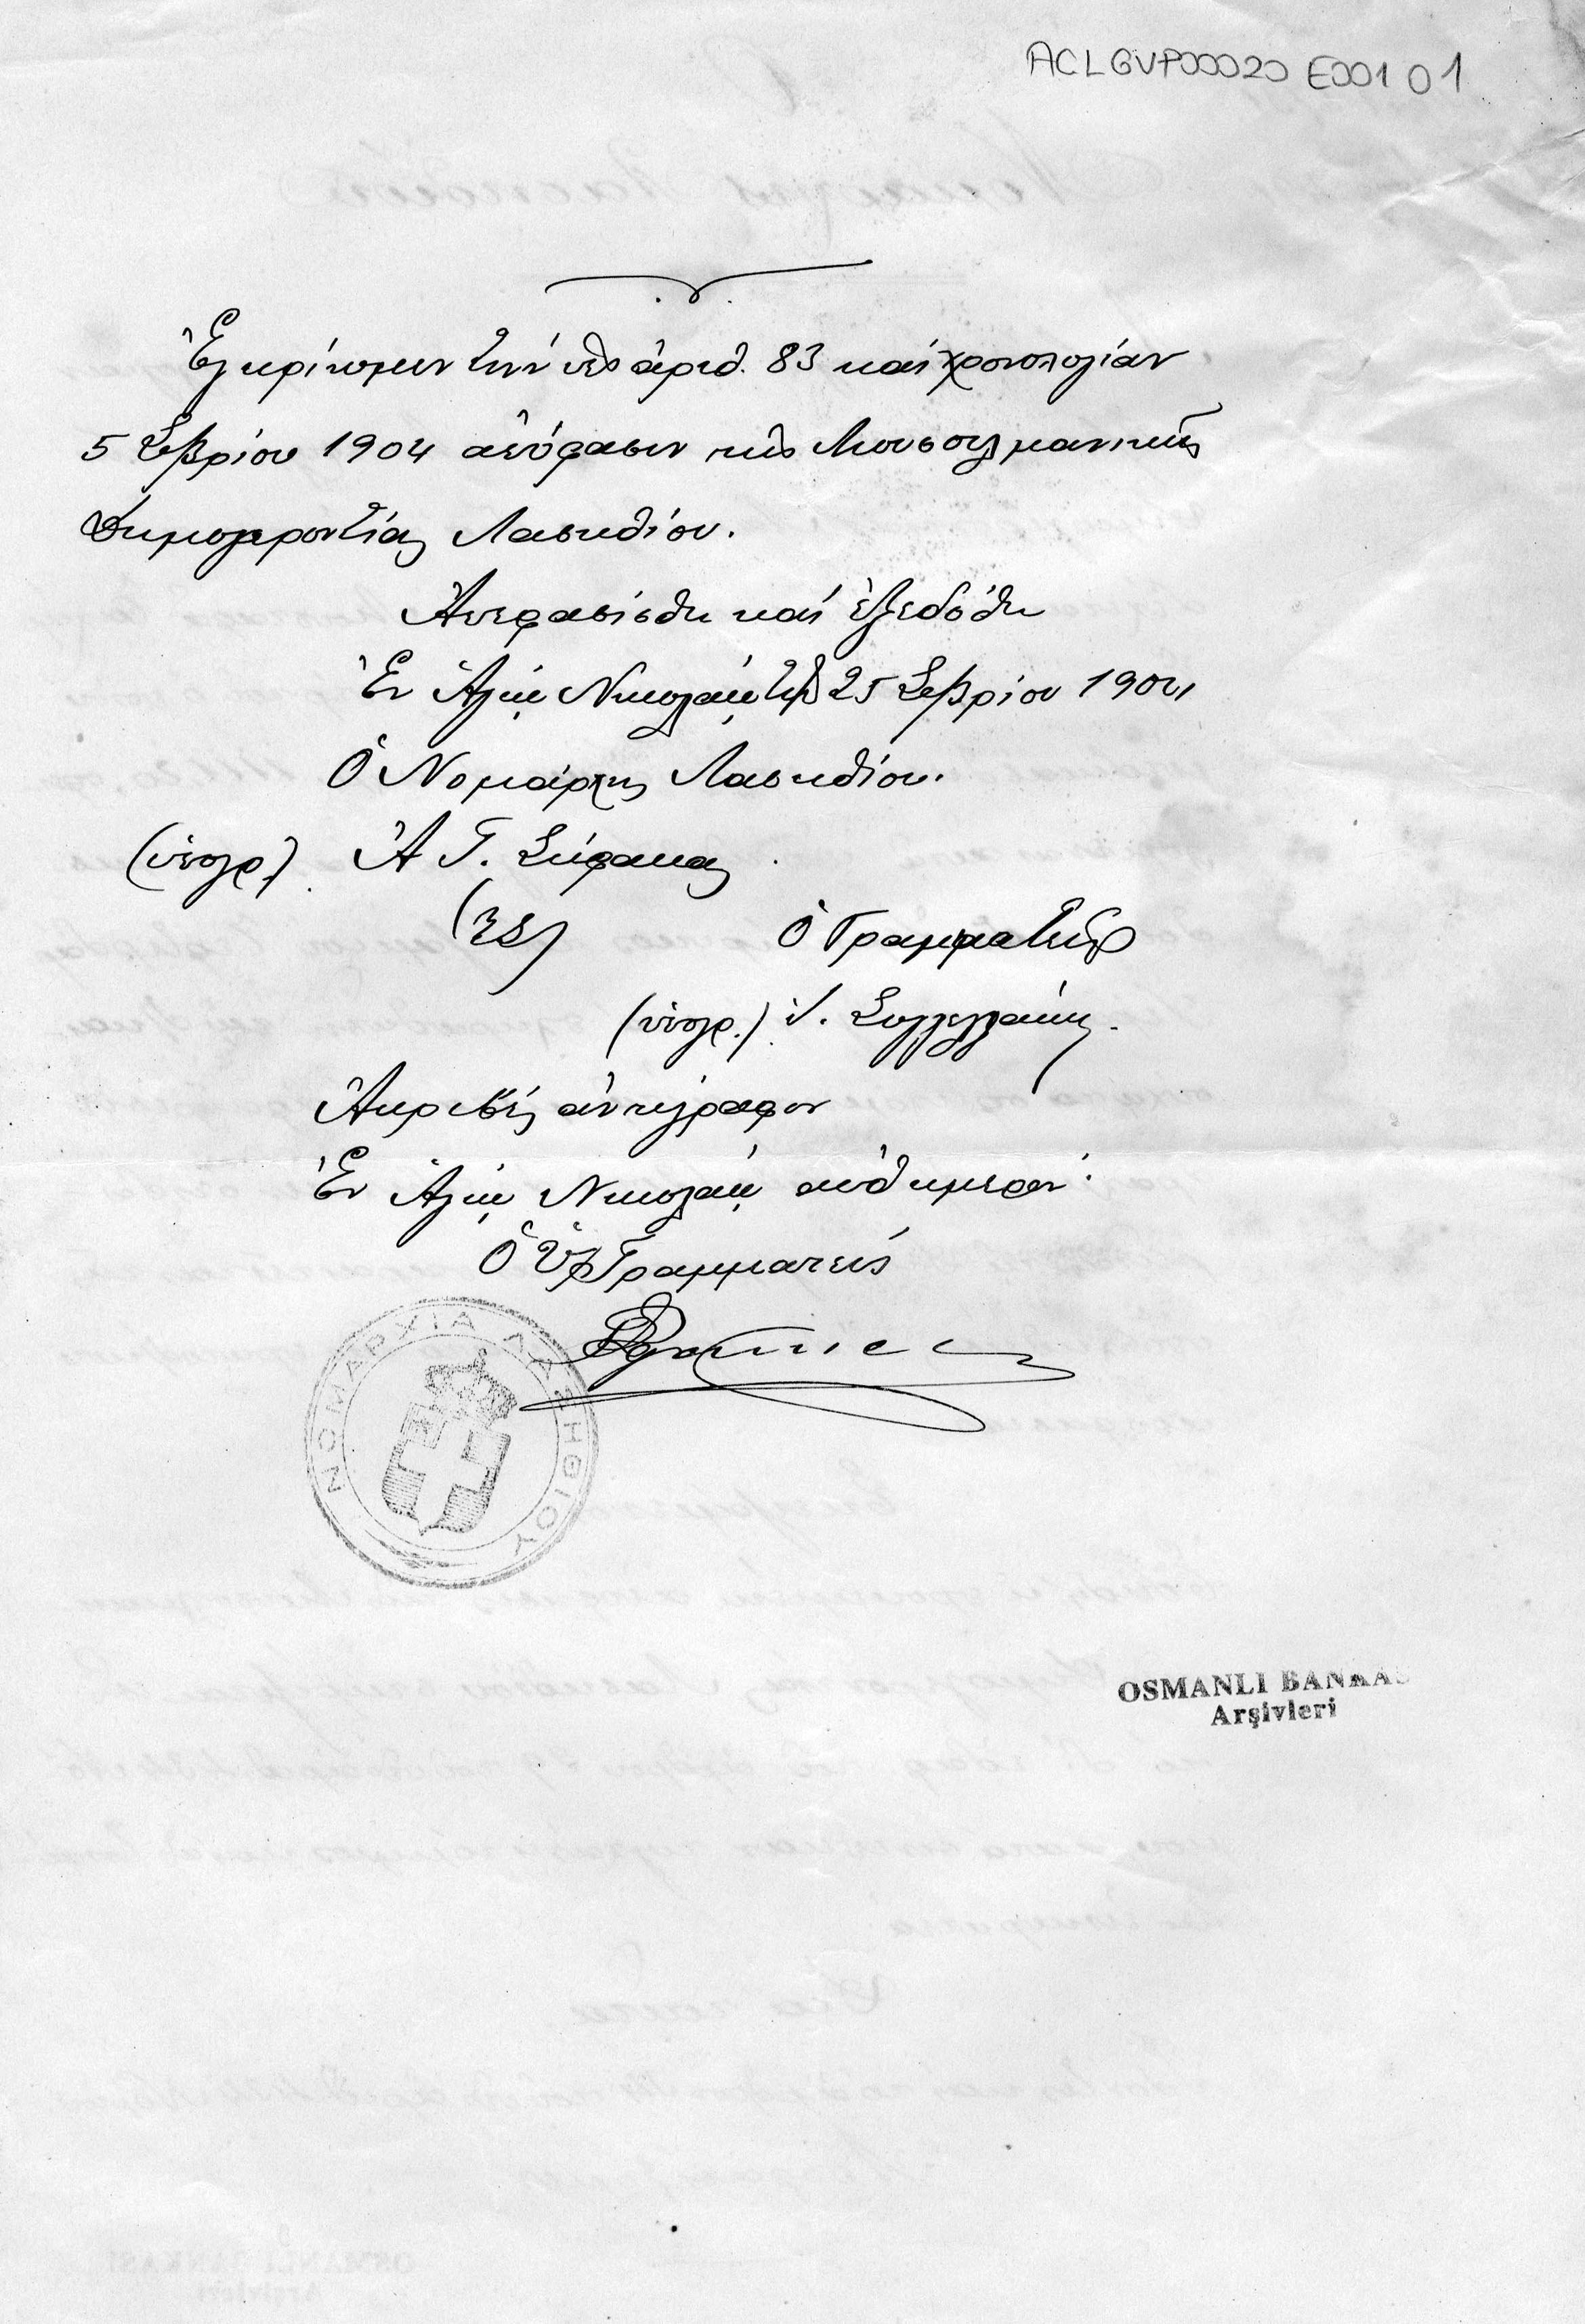 ACLGVP00020 E001 01
Ἐγκρίνομεν τὴν ὑπ' ἀριθ. 83 καὶ χρονολογίαν
5 Σεβρίου 1904 ἀπόφασιν τῆς Μουσουλμανικῆς
Δημογεροντίας Λασηθίου.
Ἀπεφασίσθη καὶ ἐξεδόθη
Ἐν Ἁγίῳ Νικολάῳ τῇ 25 Σεβρίου 1904
Ὁ Νομάρχης Λασηθίου.
(ὑπογρ.) Ἀ Γ. Σήφακας
(ΤΣ) Ὁ Γραμματεὺς
(ὑπογρ.)
Ἀκριβὲς ἀντίγραφον
Ἐν Ἁγίῳ Νικολάῳ αὐθημερόν
Ὁ Ὑπογραμματεὺς
ΝΟΜΑΡΧΙΑ ΛΑΣΗΘΙΟΥ
OSMANLI BANKAS
Arşivleri